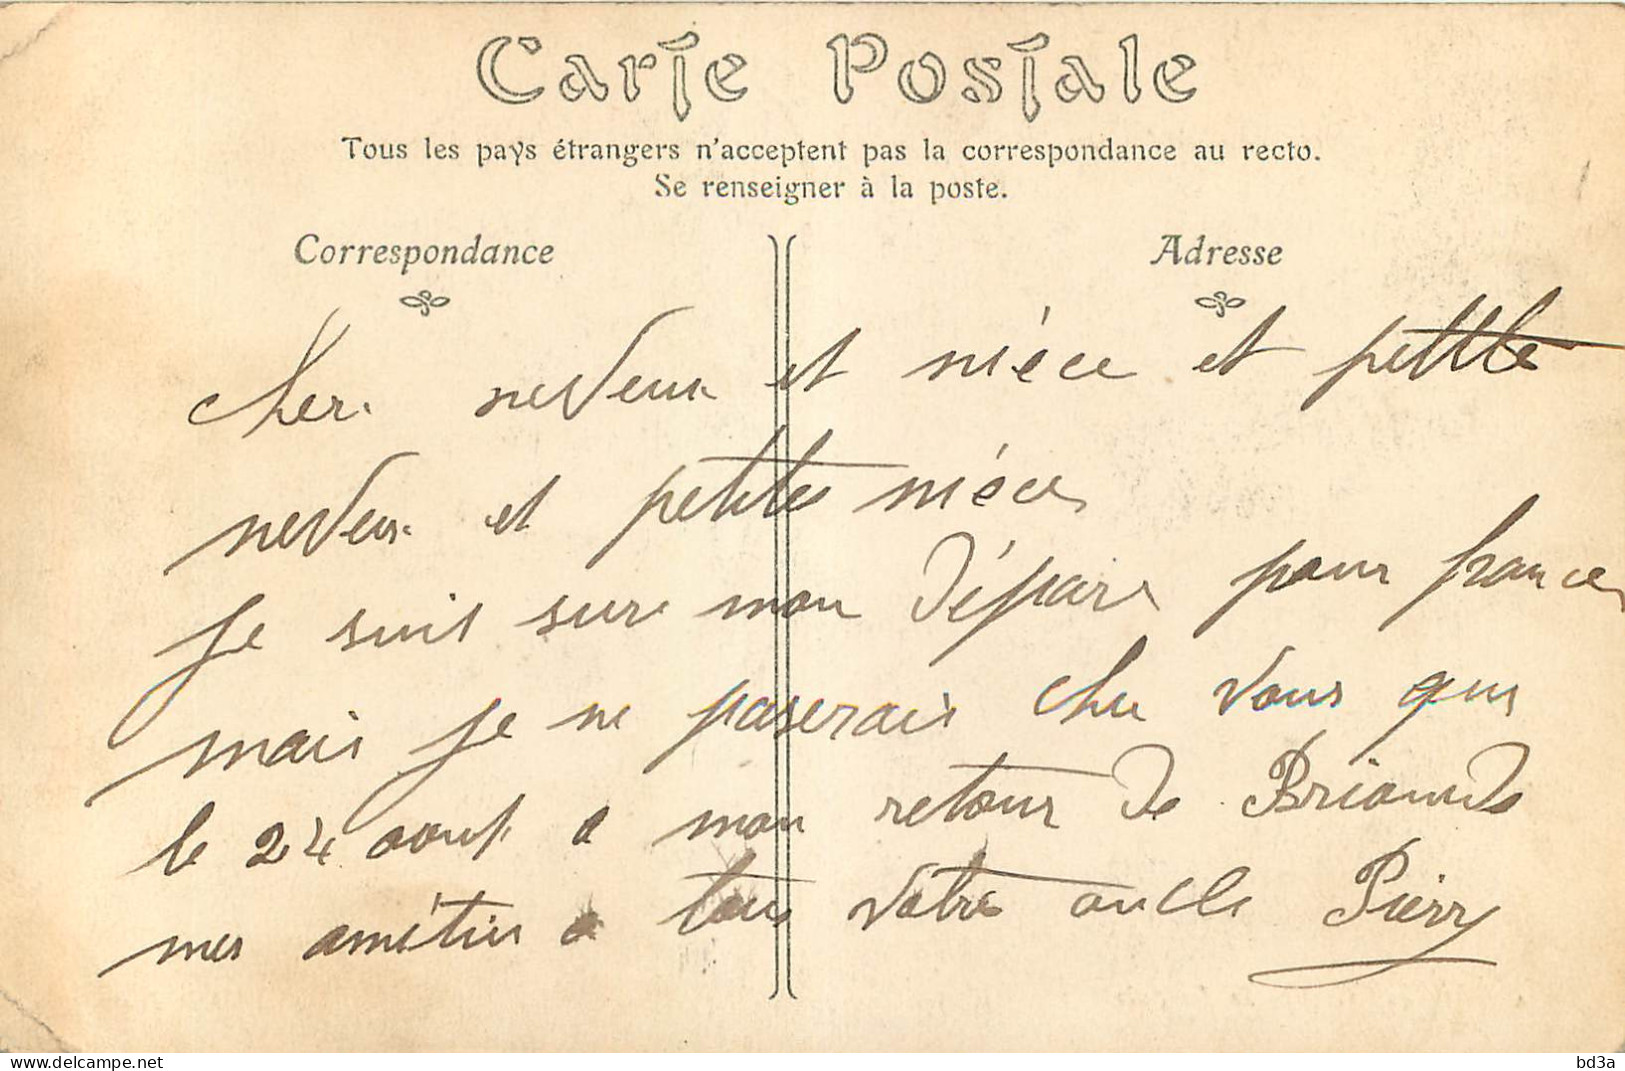 Carte Postale
Tous les pays étrangers n'acceptent pas la correspondance au recto.
Se renseigner à la poste.
Correspondance
Adresse
Cher neveux et niéce et petite
neveux et petites niéces
je suis sur mon départ pour france
mais je ne paserais che vous que
le 24 aout a mon retour de Briande
mes amitiés a tous votre oncle Pierry
www.delcampe.net
bd3a